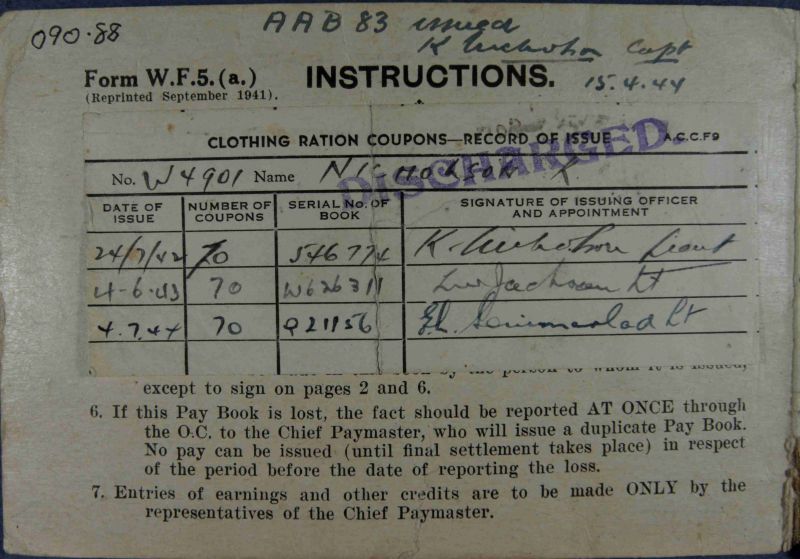 090.88
AAB 83 issued
K Nicholson Capt
15.4.44
Form W.F.5.(a.)
(Reprinted September 1941).
INSTRUCTIONS.
DISCHARGED.
CLOTHING RATION COUPONS—RECORD OF ISSUE A.C.C.F9
No. W4901 Name NICHOLSON K
DATE OF ISSUE NUMBER OF COUPONS SERIAL No. OF BOOK SIGNATURE OF ISSUING OFFICER AND APPOINTMENT
24/7/42 70 546774 K. Nicholson Lieut
4-6-43 70 W626311 Jackson Lt
4.7.44 70 Q21156 Lt
by the person to whom it is issued,
except to sign on pages 2 and 6.
6. If this Pay Book is lost, the fact should be reported AT ONCE through
the O.C. to the Chief Paymaster, who will issue a duplicate Pay Book.
No pay can be issued (until final settlement takes place) in respect
of the period before the date of reporting the loss.
7. Entries of earnings and other credits are to be made ONLY by the
representatives of the Chief Paymaster.